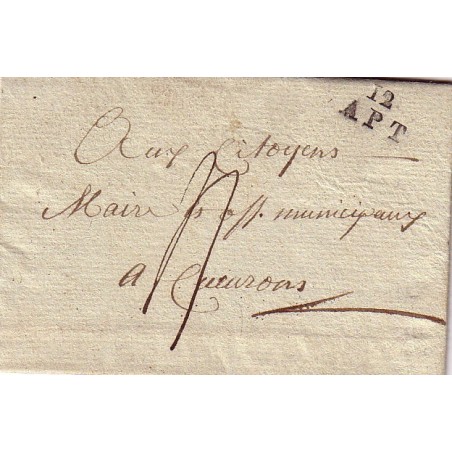 12
APT
Aux Citoyens
Maire & off. municipaux
a Cucurons